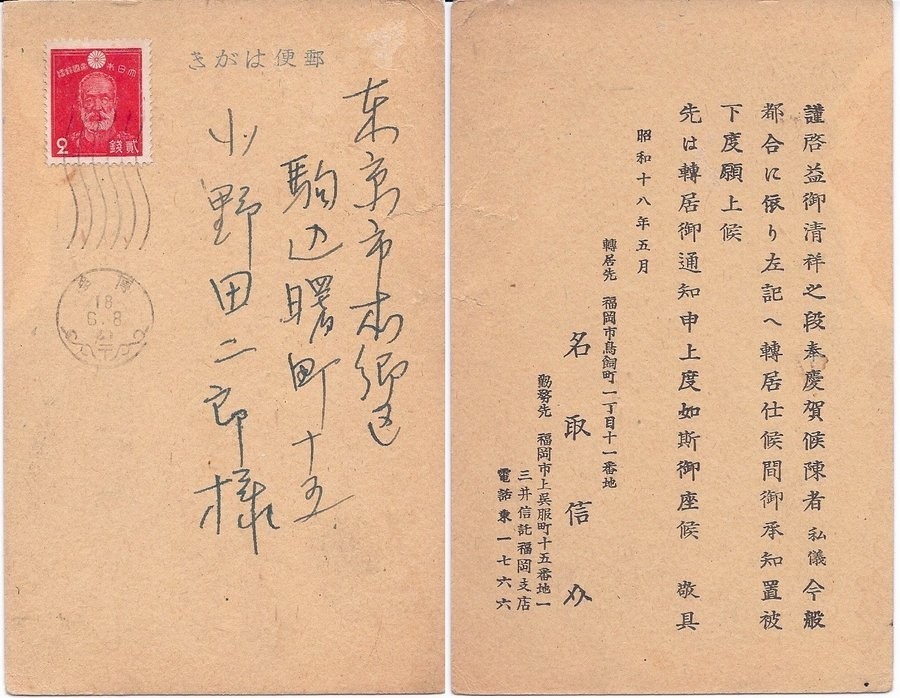 郵便はがき
大日本帝國郵便
貳錢
2
福岡
18
6.8
東京市本郷区
駒込曙町十五
小野田二郎様
謹啓益御清祥之段奉慶賀候陳者私儀今般
都合に依り左記へ轉居仕候間御承知置被
下度願上候
先は轉居御通知申上度如斯御座候 敬具
昭和十八年五月
轉居先 福岡市鳥飼町一丁目十一番地
名取信介
勤務先 福岡市上呉服町十五番地一
三井信託福岡支店
電話東一七六六